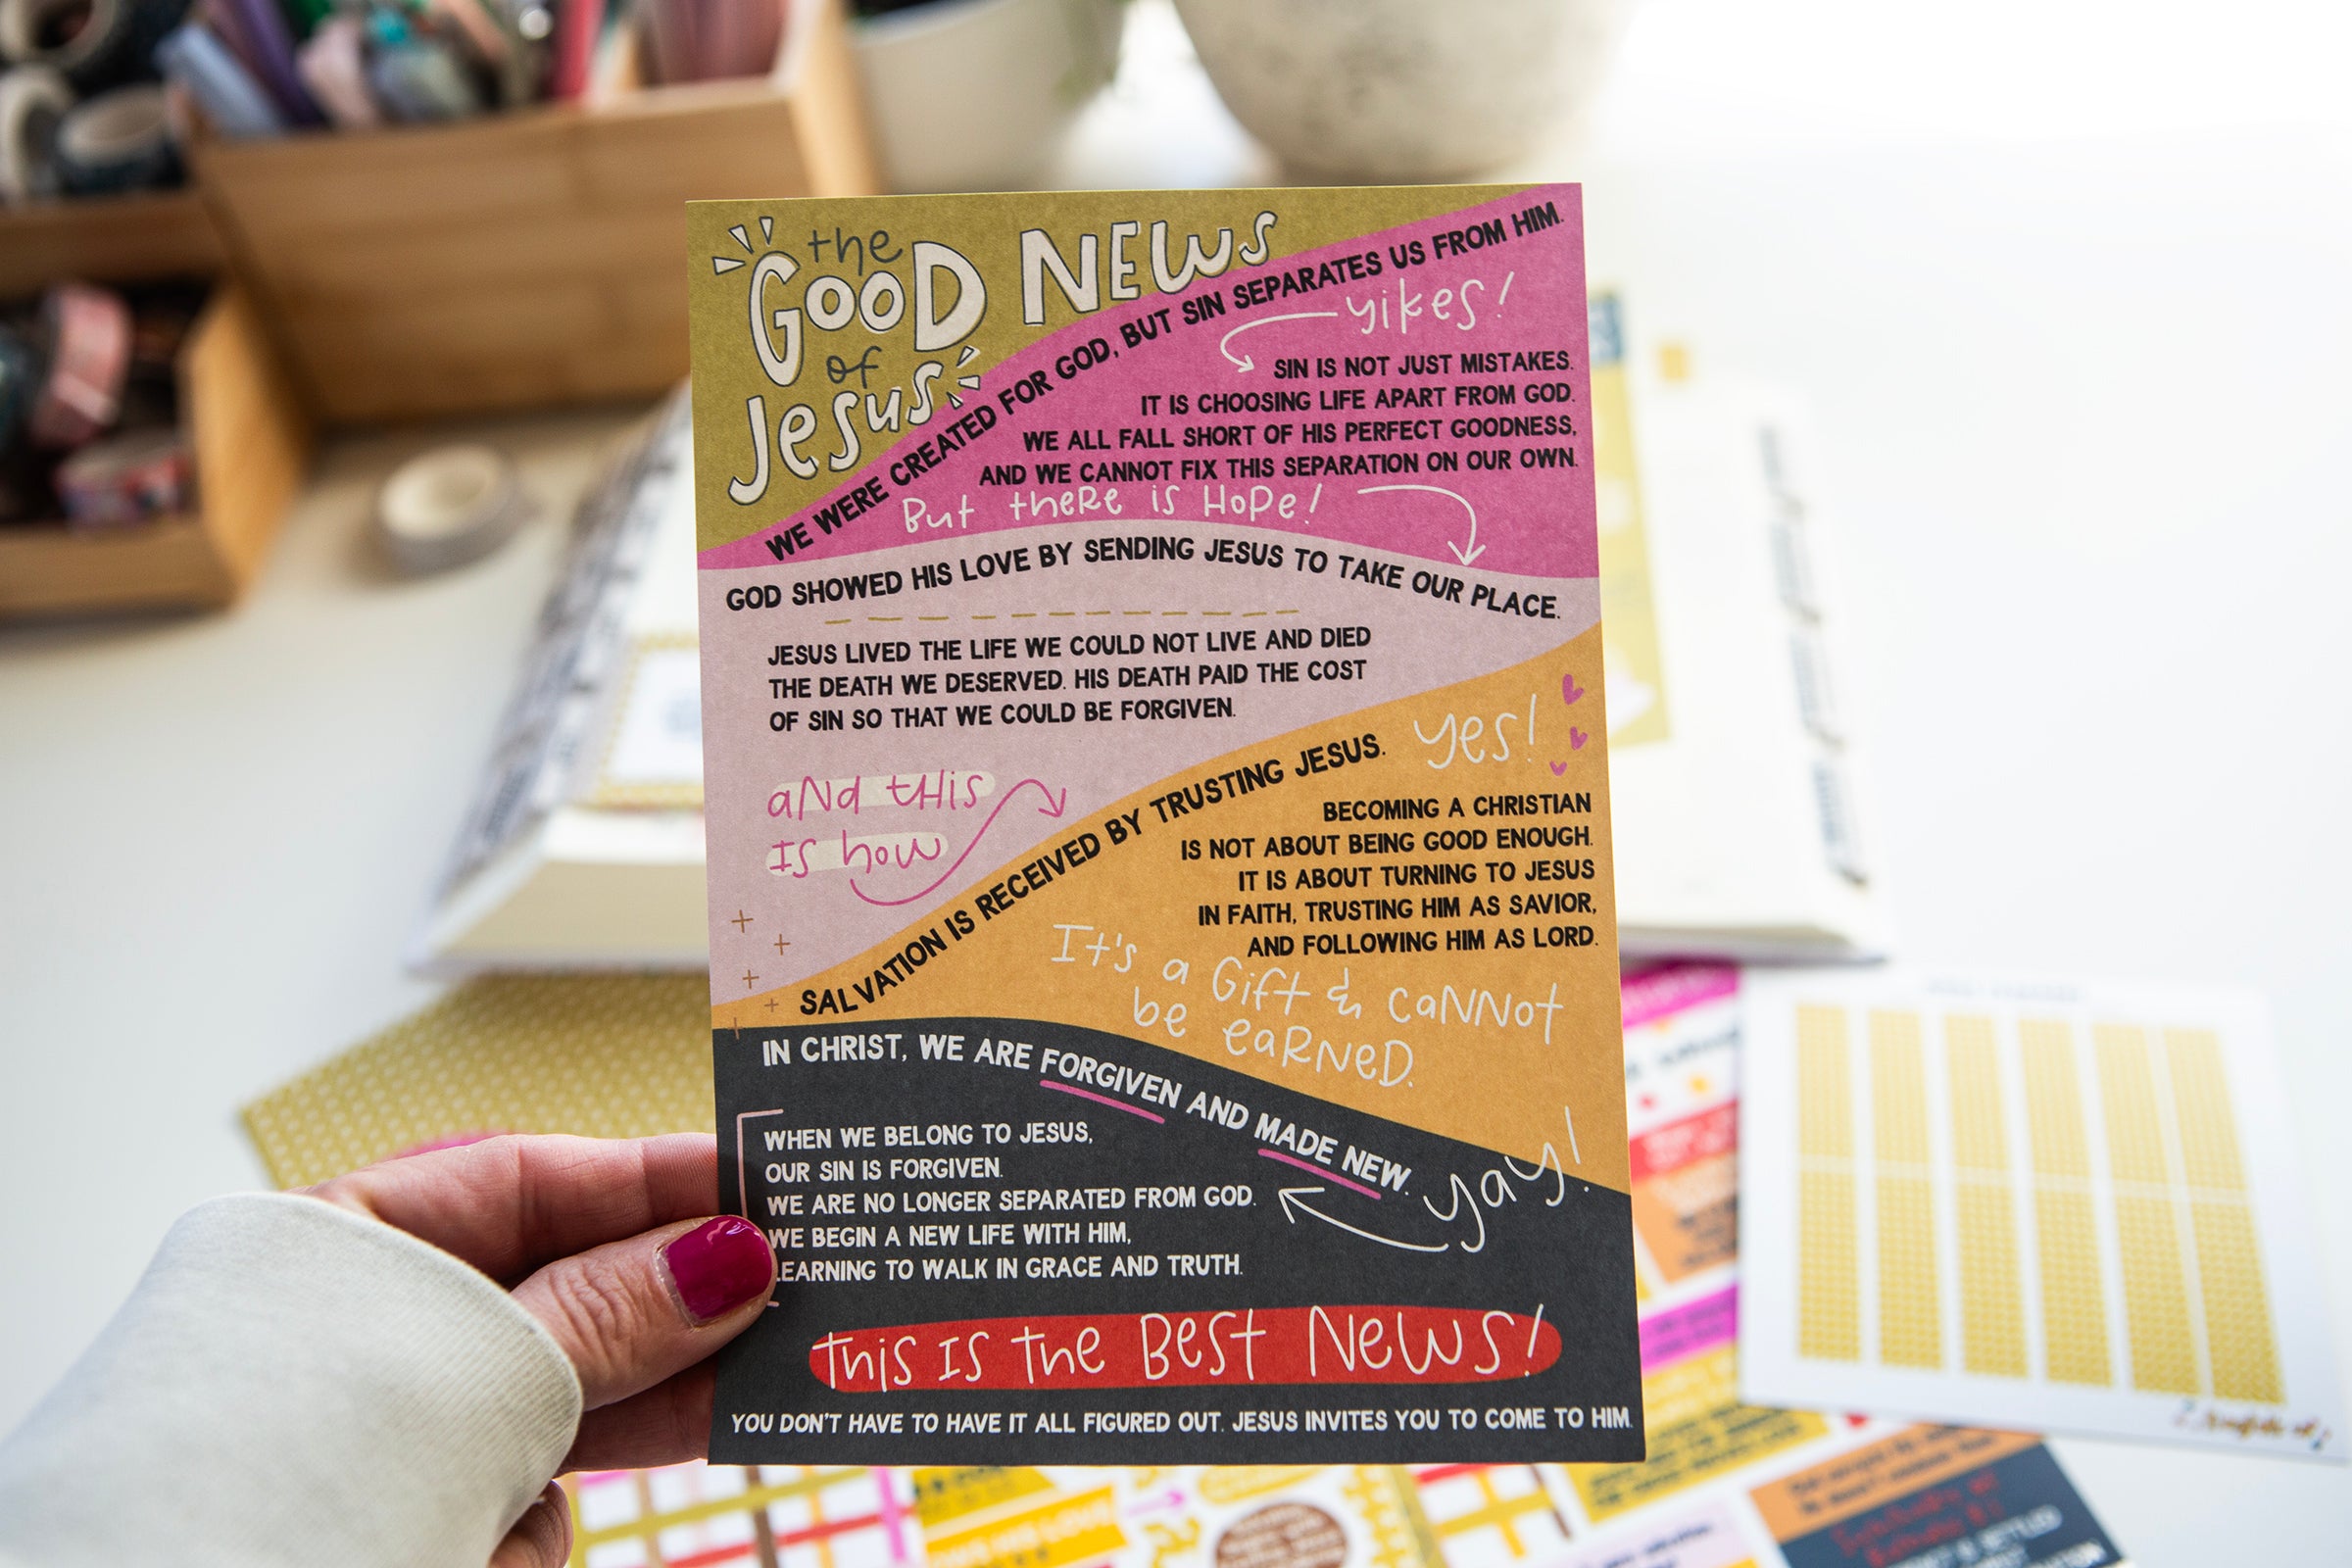 the
GOOD NEWS
of
Jesus
WE WERE CREATED FOR GOD, BUT SIN SEPARATES US FROM HIM.
yikes!
SIN IS NOT JUST MISTAKES.
IT IS CHOOSING LIFE APART FROM GOD.
WE ALL FALL SHORT OF HIS PERFECT GOODNESS,
AND WE CANNOT FIX THIS SEPARATION ON OUR OWN.
But there is Hope!
GOD SHOWED HIS LOVE BY SENDING JESUS TO TAKE OUR PLACE.
JESUS LIVED THE LIFE WE COULD NOT LIVE AND DIED
THE DEATH WE DESERVED. HIS DEATH PAID THE COST
OF SIN SO THAT WE COULD BE FORGIVEN.
and this
is how
SALVATION IS RECEIVED BY TRUSTING JESUS.
yes!
BECOMING A CHRISTIAN
IS NOT ABOUT BEING GOOD ENOUGH.
IT IS ABOUT TURNING TO JESUS
IN FAITH, TRUSTING HIM AS SAVIOR,
AND FOLLOWING HIM AS LORD.
It's a Gift & cannot
be earned.
IN CHRIST, WE ARE FORGIVEN AND MADE NEW.
yay!
WHEN WE BELONG TO JESUS,
OUR SIN IS FORGIVEN.
WE ARE NO LONGER SEPARATED FROM GOD.
WE BEGIN A NEW LIFE WITH HIM,
LEARNING TO WALK IN GRACE AND TRUTH.
This is the Best News!
YOU DON'T HAVE TO HAVE IT ALL FIGURED OUT. JESUS INVITES YOU TO COME TO HIM.